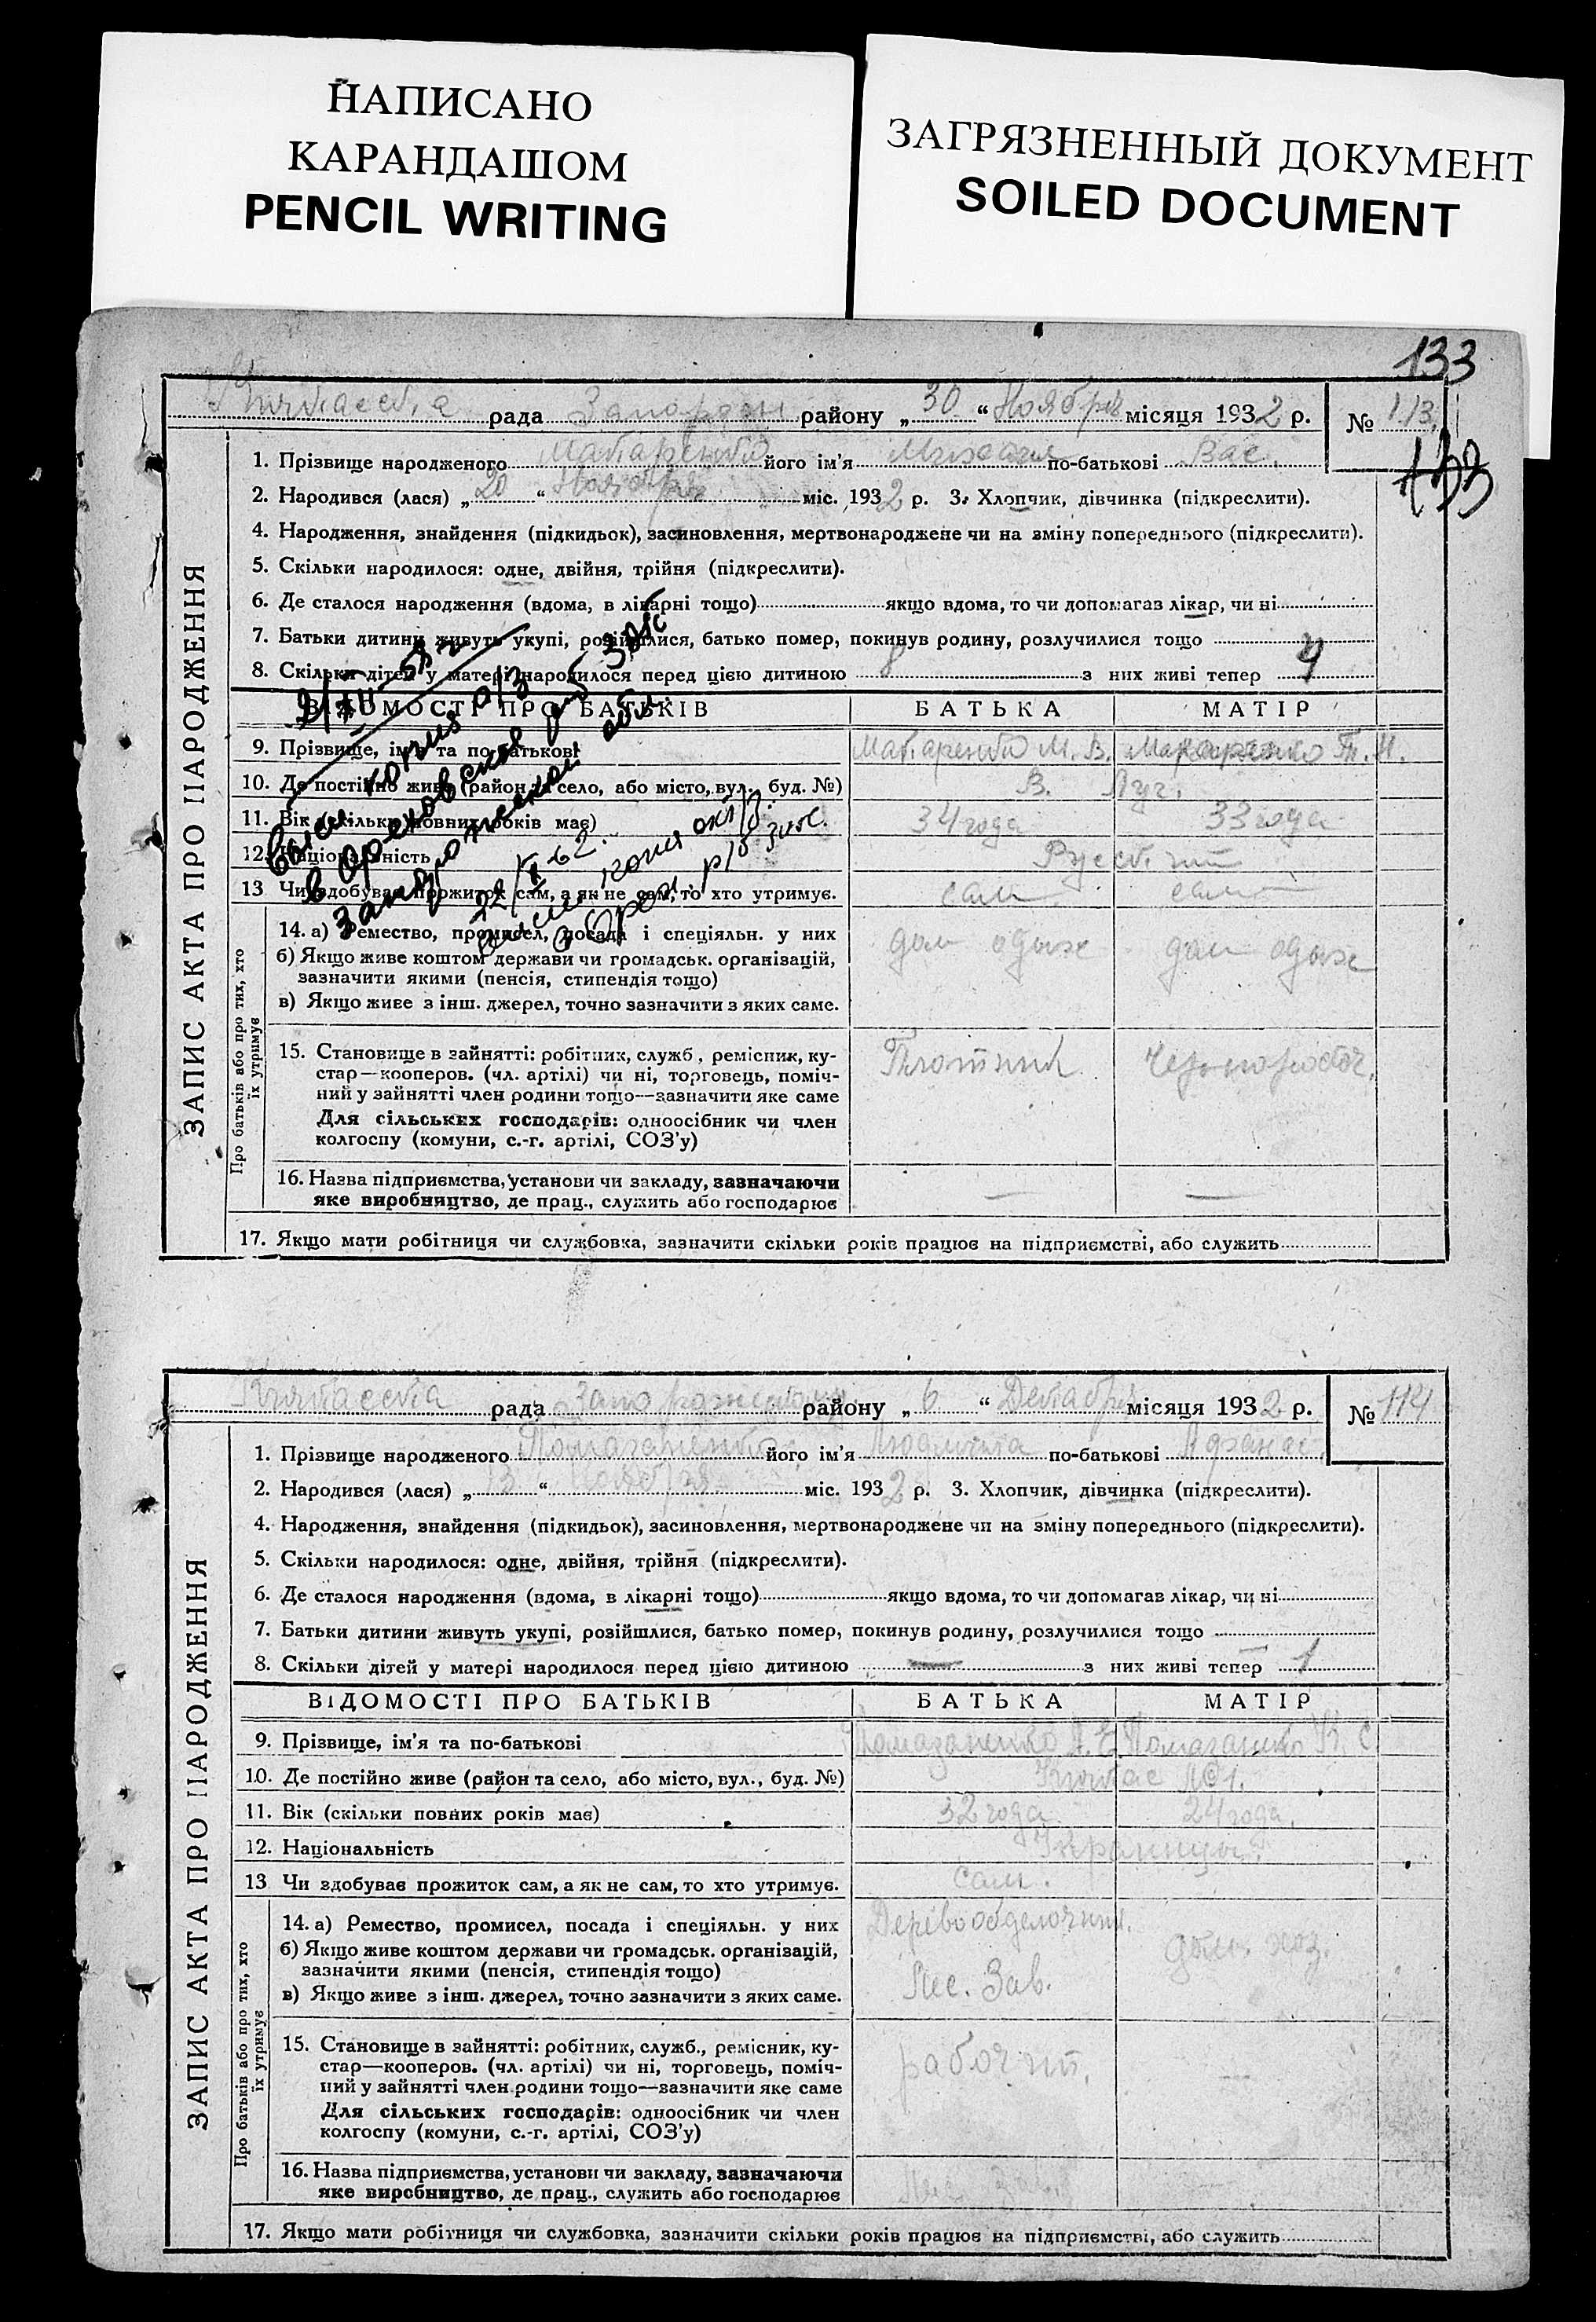 НАПИСАНО
КАРАНДАШОМ
PENCIL WRITING
ЗАГРЯЗНЕННЫЙ ДОКУМЕНТ
SOILED DOCUMENT
133
рада района „30“ Ноября місяця 1932 р. № 113
133
1. Прізвище народженого його ім'я Михаил по-батькові Вас.
2. Народився (лася) „20“ Ноября міс. 1932 р. 3. Хлопчик, дівчинка (підкреслити).
4. Народження, знайдення (підкидьок), засиновлення, мертвонароджене чи на зміну попереднього (підкреслити).
5. Скільки народилося: одне, двійня, трійня (підкреслити).
6. Де сталося народження (вдома, в лікарні тощо) якщо вдома, то чи допомагав лікар, чи ні
7. Батьки дитини живуть укупі, розійшлися, батько помер, покинув родину, розлучилися тощо
8. Скільки дітей у матері народилося перед цією дитиною 8 з них живі тепер 4
ВІДОМОСТІ ПРО БАТЬКІВ БАТЬКА МАТІР
9. Прізвище, ім'я та по-батькові Макаренко М. В. Макаренко
10. Де постійно живе (район та село, або місто, вул. буд. №) В. Луг.
11. Вік (скільки повних років має) 34 года 33 года
12. Національність
13 Чи здобуває прожиток сам, а як не сам, то хто утримує. сам
14. а) Ремество, промисел, посада і спеціяльн. у них
б) Якщо живе коштом держави чи громадськ. організацій,
зазначити якими (пенсія, стипендія тощо)
в) Якщо живе з інш. джерел, точно зазначити з яких саме.
15. Становище в зайнятті: робітник, служб., ремісник, ку-
стар—кооперов. (чл. артілі) чи ні, торговець, поміч-
ний у зайнятті член родини тощо—зазначити яке саме
Для сільських господарів: одноосібник чи член
колгоспу (комуни, с.-г. артілі, СОЗ'у)
Плотник
16. Назва підприємства, установи чи закладу, зазначаючи
яке виробництво, де прац., служить або господарює
17. Якщо мати робітниця чи службовка, зазначити скільки років працює на підприємстві, або служить
ЗАПИС АКТА ПРО НАРОДЖЕННЯ
Про батьків або про тих, хто
їх утримує
рада району „6“ Декабря місяця 1932 р. № 114
1. Прізвище народженого його ім'я Людмила по-батькові Афанас
2. Народився (лася) „13“ Ноября міс. 1932 р. 3. Хлопчик, дівчинка (підкреслити).
4. Народження, знайдення (підкидьок), засиновлення, мертвонароджене чи на зміну попереднього (підкреслити).
5. Скільки народилося: одне, двійня, трійня (підкреслити).
6. Де сталося народження (вдома, в лікарні тощо) якщо вдома, то чи допомагав лікар, чи ні
7. Батьки дитини живуть укупі, розійшлися, батько помер, покинув родину, розлучилися тощо
8. Скільки дітей у матері народилося перед цією дитиною — з них живі тепер 1
ВІДОМОСТІ ПРО БАТЬКІВ БАТЬКА МАТІР
9. Прізвище, ім'я та по-батькові
10. Де постійно живе (район та село, або місто, вул., буд. №)
11. Вік (скільки повних років має) 32 года 24 года.
12. Національність
13 Чи здобуває прожиток сам, а як не сам, то хто утримує. Сам.
14. а) Ремество, промисел, посада і спеціяльн. у них
б) Якщо живе коштом держави чи громадськ. організацій,
зазначити якими (пенсія, стипендія тощо)
в) Якщо живе з інш. джерел, точно зазначити з яких саме.
Лес. Зав.
дом. хоз.
15. Становище в зайнятті: робітник, служб., ремісник, ку-
стар—кооперов. (чл. артілі) чи ні, торговець, поміч-
ний у зайнятті член родини тощо—зазначити яке саме
Для сільських господарів: одноосібник чи член
колгоспу (комуни, с.-г. артілі, СОЗ'у)
рабочий.
16. Назва підприємства, установи чи закладу, зазначаючи
яке виробництво, де прац., служить або господарює
17. Якщо мати робітниця чи службовка, зазначити скільки років працює на підприємстві, або служить
ЗАПИС АКТА ПРО НАРОДЖЕННЯ
Про батьків або про тих, хто
їх утримує